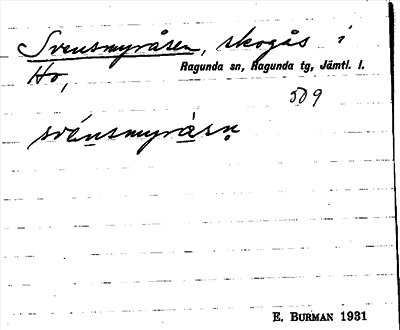 Svensmyråsen, skogås i
Ho, Ragunda sn, Ragunda tg, Jämtl. l.
509
svénsmyràsn̥
E. BURMAN 1931